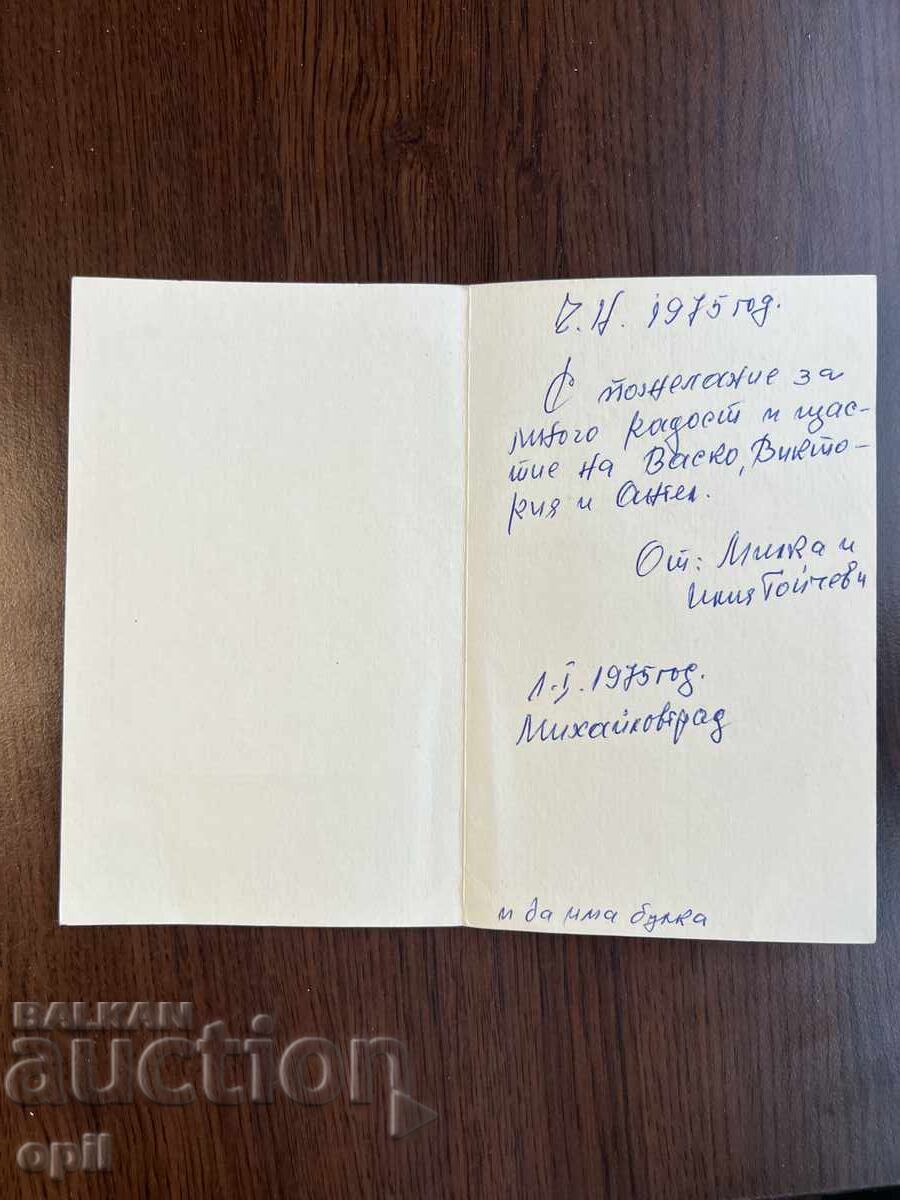 Ч.Н. 1975 год.
С пожелание за
много радост и щас-
тие на Васко, Викто-
рия и Ангел.
От: Милка и
Илия Тойчеви
1.I.1975 год.
Михайловград
и да има булка
BALKAN
auction
opil